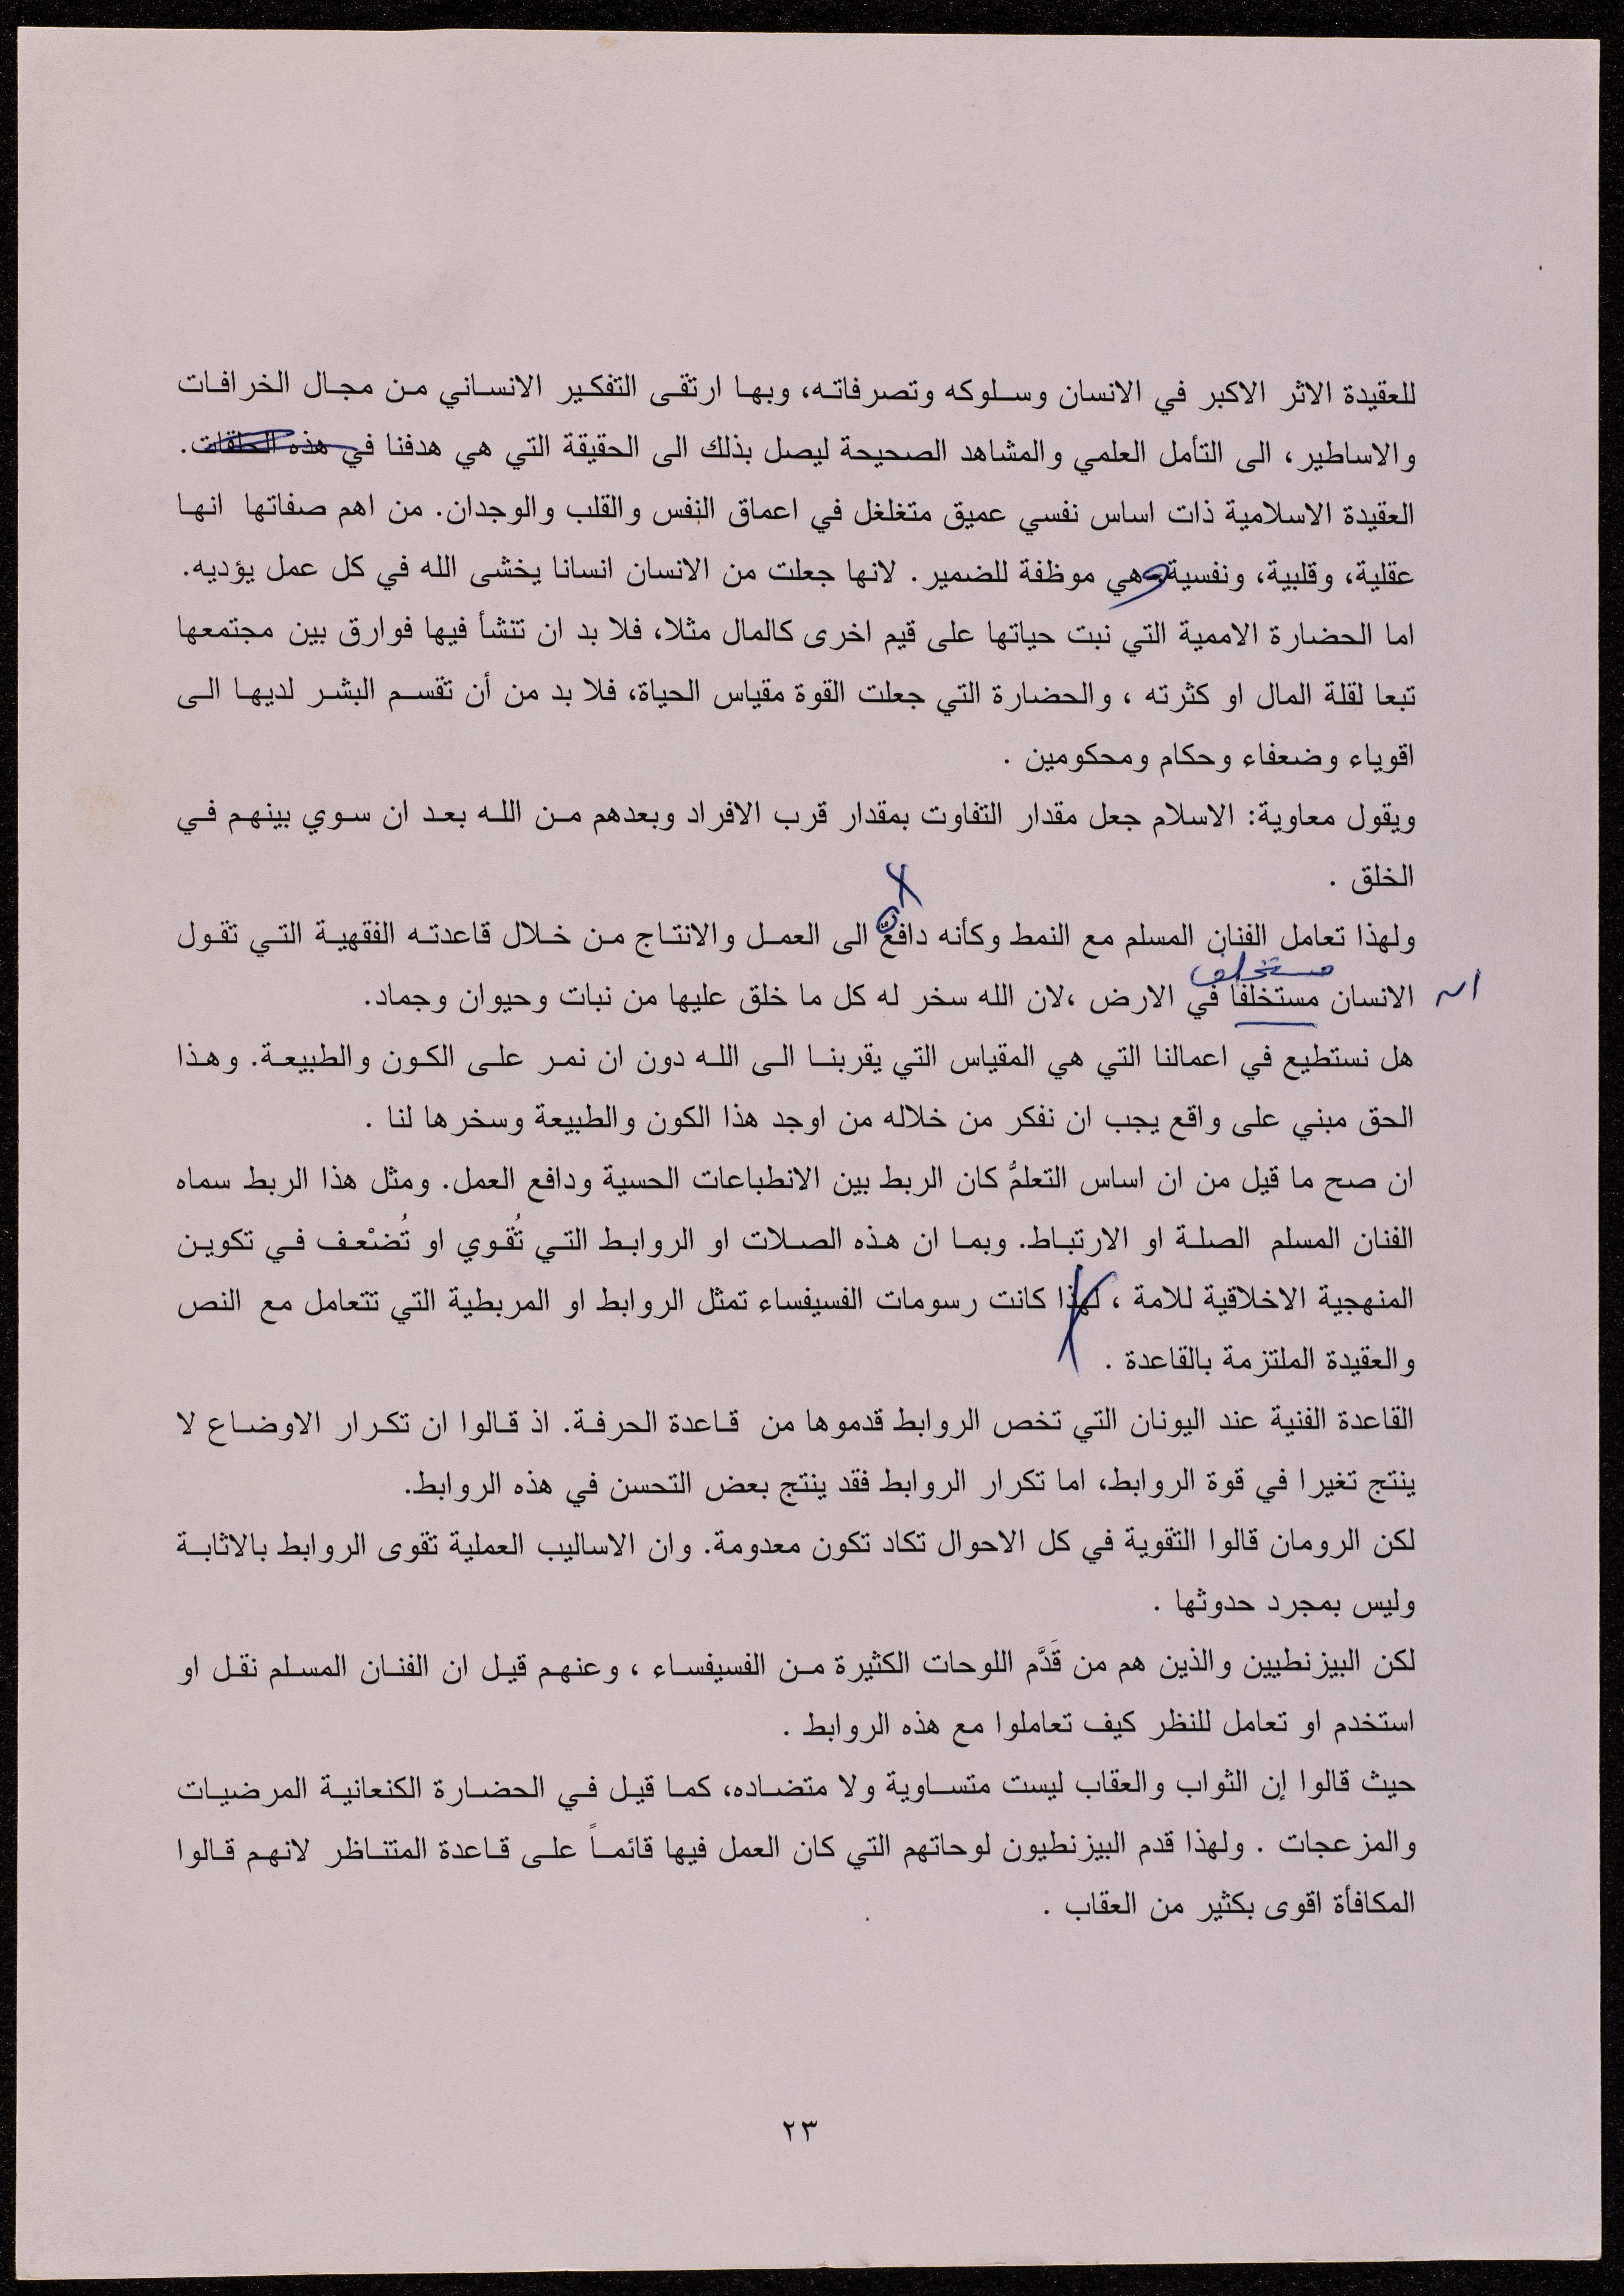 للعقيدة الاثر الاكبر في الانسان وسلوكه وتصرفاته، وبها ارتقى التفكير الانساني من مجال الخرافات
والاساطير، الى التأمل العلمي والمشاهد الصحيحة ليصل بذلك الى الحقيقة التي هي هدفنا في هذه الحلقات.
العقيدة الاسلامية ذات اساس نفسي عميق متغلغل في اعماق النفس والقلب والوجدان. من اهم صفاتها انها
عقلية، وقلبية، ونفسية وهي موظفة للضمير. لانها جعلت من الانسان انسانا يخشى الله في كل عمل يؤديه.
اما الحضارة الاممية التي نبت حياتها على قيم اخرى كالمال مثلا، فلا بد ان تنشأ فيها فوارق بين مجتمعها
تبعا لقلة المال او كثرته ، والحضارة التي جعلت القوة مقياس الحياة، فلا بد من أن تقسم البشر لديها الى
اقوياء وضعفاء وحكام ومحكومين .
ويقول معاوية: الاسلام جعل مقدار التفاوت بمقدار قرب الافراد وبعدهم من الله بعد ان سوي بينهم في
الخلق .
ولهذا تعامل الفنان المسلم مع النمط وكأنه دافعٌ الى العمل والانتاج من خلال قاعدته الفقهية التي تقول
مستخلف
الانسان مستخلفا في الارض ،لان الله سخر له كل ما خلق عليها من نبات وحيوان وجماد.
هل نستطيع في اعمالنا التي هي المقياس التي يقربنا الى الله دون ان نمر على الكون والطبيعة. وهذا
الحق مبني على واقع يجب ان نفكر من خلاله من اوجد هذا الكون والطبيعة وسخرها لنا .
ان صح ما قيل من ان اساس التعلمُّ كان الربط بين الانطباعات الحسية ودافع العمل. ومثل هذا الربط سماه
الفنان المسلم الصلة او الارتباط. وبما ان هذه الصلات او الروابط التي تُقوي او تُضنْعف في تكوين
المنهجية الاخلاقية للامة ، لهذا كانت رسومات الفسيفساء تمثل الروابط او المربطية التي تتعامل مع النص
والعقيدة الملتزمة بالقاعدة .
القاعدة الفنية عند اليونان التي تخص الروابط قدموها من قاعدة الحرفة. اذ قالوا ان تكرار الاوضاع لا
ينتج تغيرا في قوة الروابط، اما تكرار الروابط فقد ينتج بعض التحسن في هذه الروابط.
لكن الرومان قالوا التقوية في كل الاحوال تكاد تكون معدومة. وان الاساليب العملية تقوى الروابط بالاثابة
وليس بمجرد حدوثها .
لكن البيزنطيين والذين هم من قَدَّم اللوحات الكثيرة من الفسيفساء ، وعنهم قيل ان الفنان المسلم نقل او
استخدم او تعامل للنظر كيف تعاملوا مع هذه الروابط .
حيث قالوا إن الثواب والعقاب ليست متساوية ولا متضاده، كما قيل في الحضارة الكنعانية المرضيات
والمزعجات . ولهذا قدم البيزنطيون لوحاتهم التي كان العمل فيها قائماً على قاعدة المتناظر لانهم قالوا
المكافأة اقوى بكثير من العقاب .
٢٣